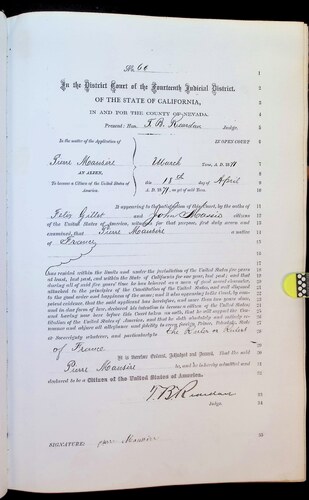 No 60
In the District Court of the Fourteenth Judicial District,
OF THE STATE OF CALIFORNIA,
IN AND FOR THE COUNTY OF NEVADA.
Present: Hon. T. B. Reardan Judge.
In the matter of the Application of
IN OPEN COURT
Pierre Mausire
March Term, A. D. 1871
AN ALIEN,
this 18th day of April
To become a Citizen of the United States of America
A. D. 1871, as yet of said Term.
It appearing to the satisfaction of this Court, by the oaths of
Felix Gillet and John Massie citizens
of the United States of America, witnesses for that purpose, first duly sworn and
examined that Pierre Mausire a native
of France
has resided within the limits and under the jurisdiction of the United States five years
at least, last past, and within the State of California for one year, last past; and that
during all of said five years' time he has behaved as a man of good moral character,
attached to the principles of the Constitution of the United States, and well disposed
to the good order and happiness of the same; and it also appearing to the Court, by competent evidence, that the said applicant has heretofore, and more than two years since,
and in due form of law, declared his intention to become a citizen of the United States,
and having now here before this Court taken an oath, that he will support the Constitution of the United States of America, and that he doth absolutely and entirely renounce and abjure all allegiance and fidelity to every foreign Prince, Potentate, State
or Sovereignty whatever, and particularly to the Ruler or Rulers
of France
It is therefore Ordered, Adjudged and Decreed, that the said
Pierre Mausire be, and he is hereby admitted and
declared to be a Citizen of the United States of America.
T. B. Reardan
Judge.
SIGNATURE: Pierre Mausire